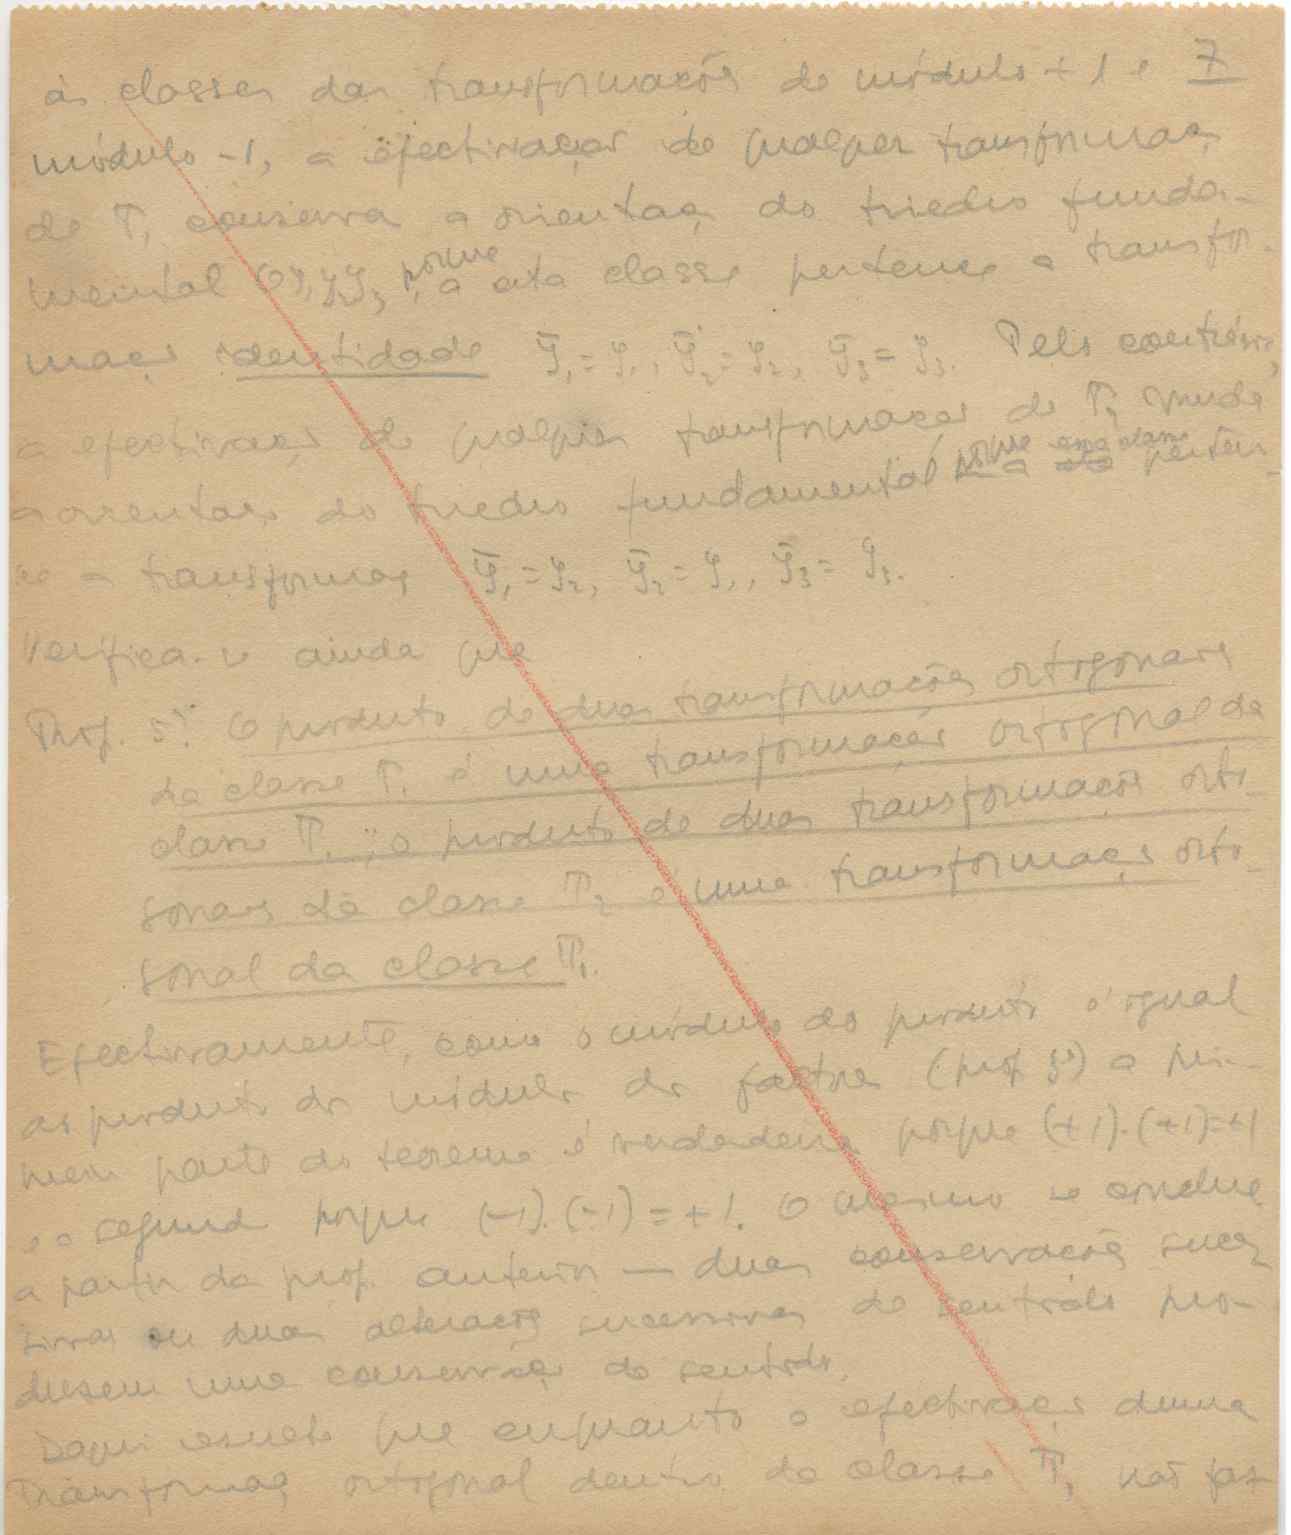 às classes das transformações de módulo +1 e 7
módulo -1, a efectivação de qualquer transformação
de T₁ conserva a orientação do triedro funda-
mental Oy₁y₂y₃, porque a esta classe pertence a transfor-
mação identidade ȳ₁ = y₁, ȳ₂ = y₂, ȳ₃ = y₃. Pelo contrário,
a efectivação de qualquer transformação de T₂ muda
a orientação do triedro fundamental porque a essa classe perten-
ce a transformação ȳ₁ = y₂, ȳ₂ = y₁, ȳ₃ = y₃.
Verifica-se ainda que
Prop. 5ª: O produto de duas transformações ortogonais
da classe T₁ é uma transformação ortogonal da
classe T₁; o produto de duas transformações orto-
gonais da classe T₂ é uma transformação orto-
gonal da classe T₁.
Efectivamente, como o módulo do produto é igual
ao produto dos módulos dos factores (prop. 3ª) a pri-
meira parte do teorema é verdadeira porque (+1).(+1)=+1
e a segunda porque (-1).(-1) = +1. O mesmo se conclue
a partir da prop. anterior — duas conservações suces-
sivas ou duas alterações sucessivas de sentido pro-
duzem uma conservação de sentido.
Daqui resulta que enquanto a efectivação duma
transformação ortogonal dentro da classe T₁ não faz